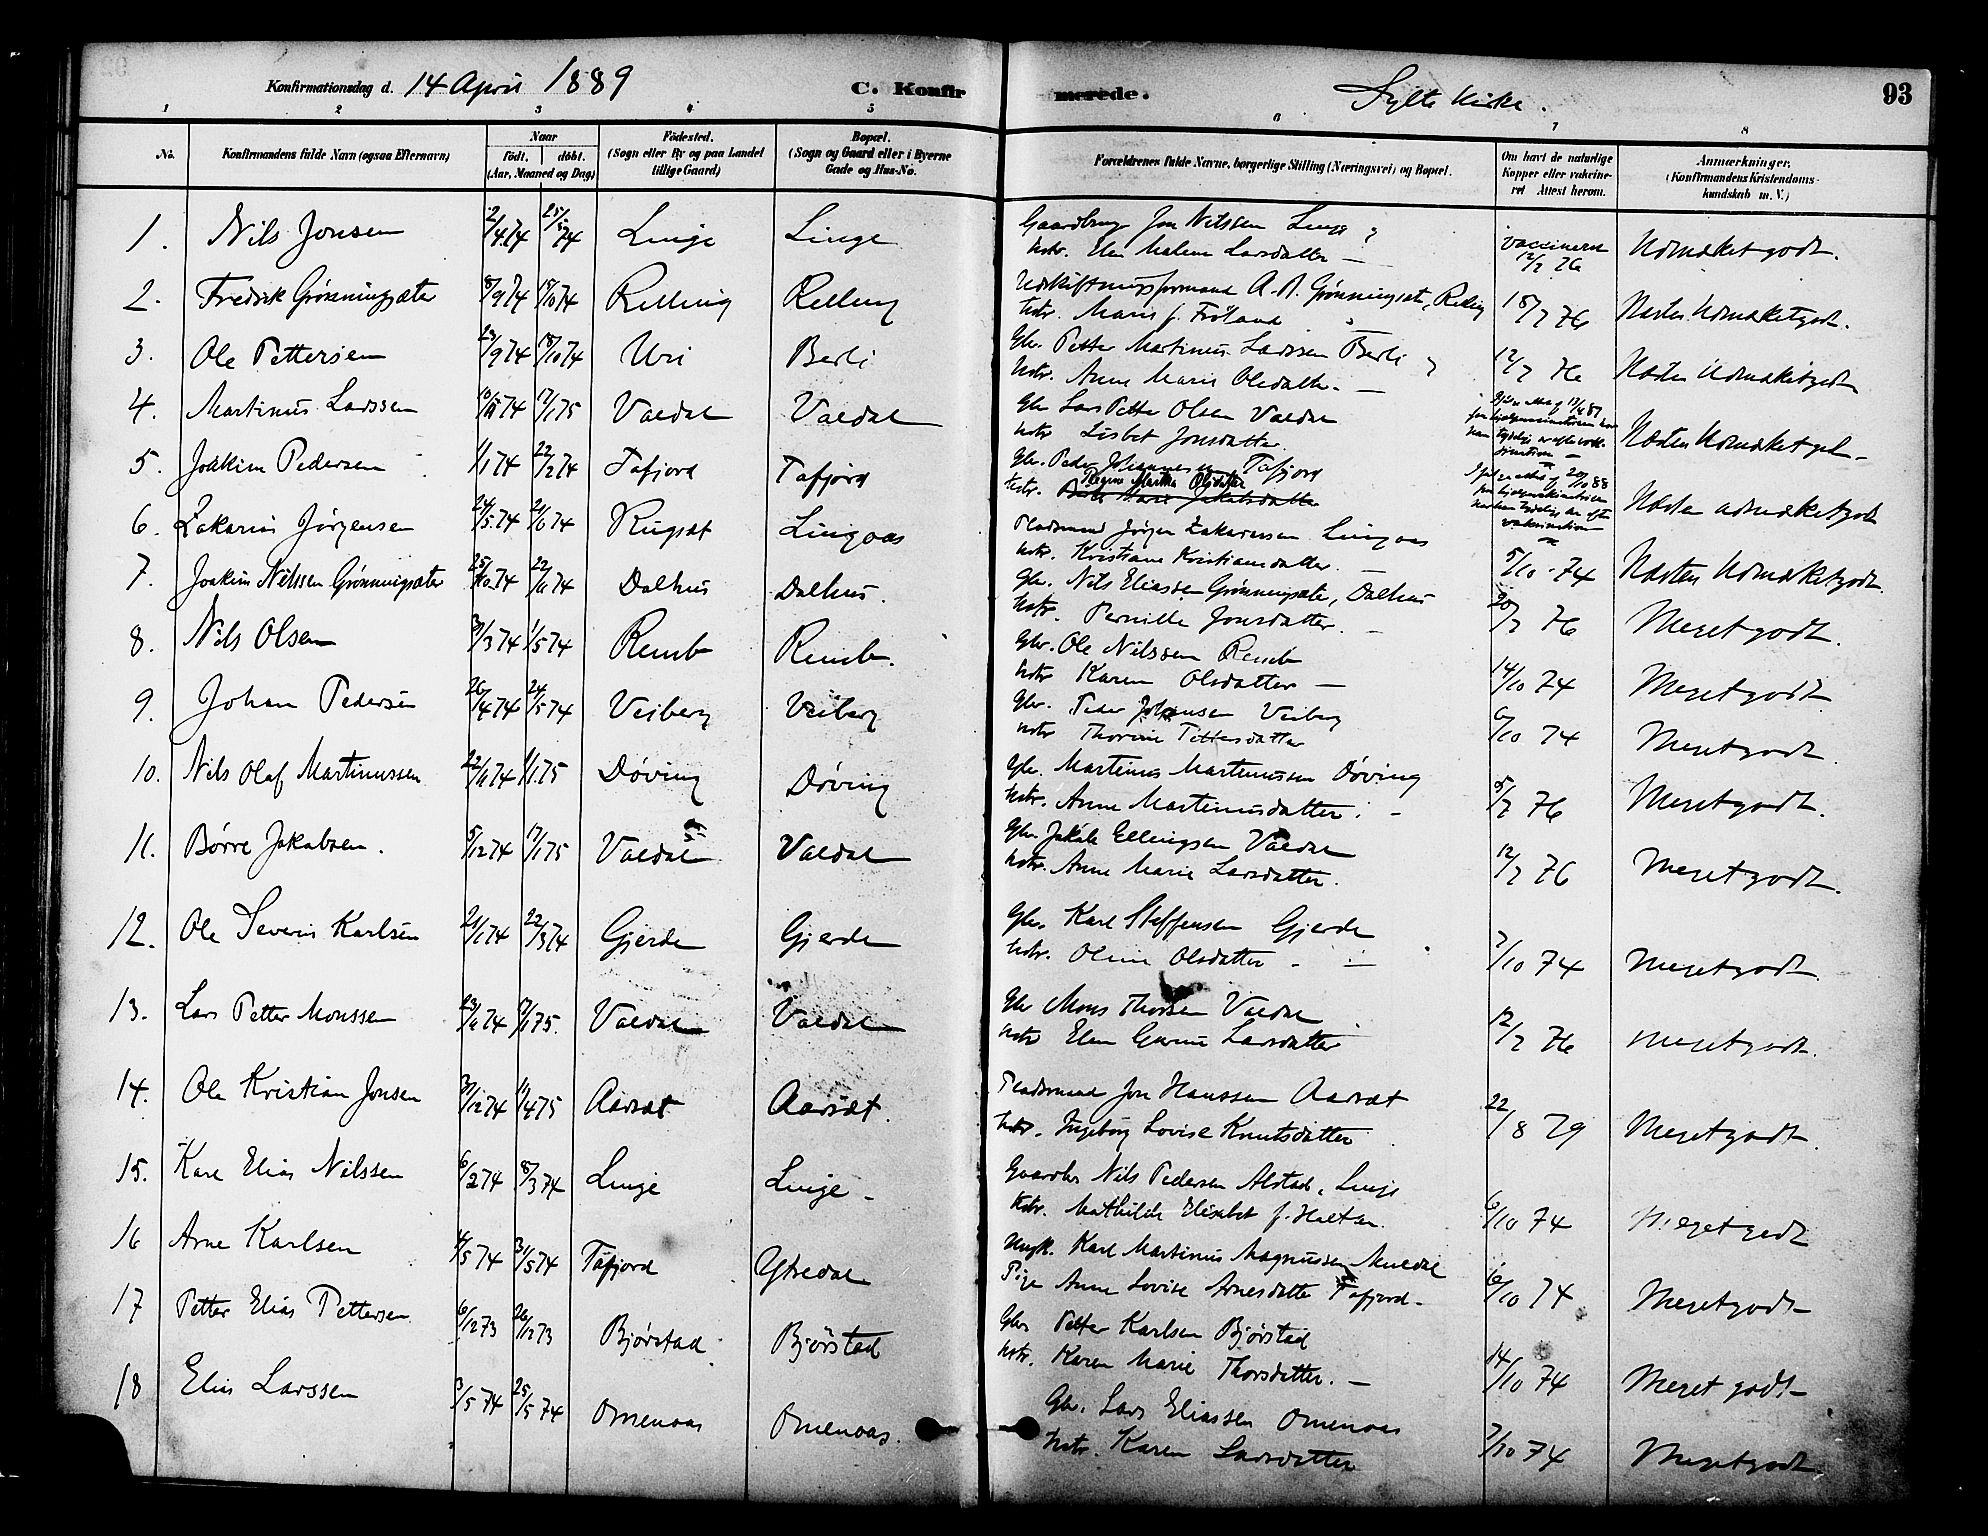 Konfirmationsdag d. 14 April 1889 C. Konfirmerede. Sylte Kirke. 93
1 2 3 4 5 6 7 8
No. Konfirmandens fulde Navn (ogsaa Efternavn) Naar født, døbt. (Aar, Maaned og Dag) Fødested. (Sogn eller By og paa Landet tillige Gaard) Bopæl. (Sogn og Gaard eller i Byerne Gade og Hus-No. Forældrenes fulde Navne, borgerlige Stilling (Næringsvei) og Bopæl. Om havt de naturlige Kopper eller vakcineret Attest herom. Anmærkninger, (Konfirmandens Kristendomskundskab m. V.)
1. Nils Jonsen 2/4 74 25/5 74 Linge Linge Gaardbrug Jon Nilssen Linge vaccineret 12/7 76 Udmærket godt.
Hstr. Malene Larsdatter —
2. Fredrik Grønningsæter 8/9 74 18/10 74 Relling Relling Udskiftningsformand A. A. Grønningsæt, Relling 18/7 76 Næsten Udmærketgodt.
Hstr. Marie f. Frøland
3. Ole Pettersen 23/9 74 18/10 74 Uri Berli Gbr. Petter Martinus Larssen Berli 12/7 76 Næsten Udmærketgodt
Hstr. Anne Marie Olsdatter. —
4. Martinus Larssen 17/1 75 Valdal Valdal Gbr Lars Petter Olsen Valdal Næsten Udmærketgodt.
Hstr Lisbet Jonsdatter
5. Joakim Pedersen 1/1 74 22/2 74 Tafjord Tafjord Gbr. Peder Johannesen Tafjord Næsten udmærketgodt
Hstr. Martha Olsdatter
6. Zakarias Jørgensen 24/5 74 Rugsæt Lingaas Pladsmand Jørgen Zakariassen Lingaas 5/10 74 Næsten Udmærketgodt.
Hstr. Kristiane Kristiansdatter. —
7. Joakim Nilssen Grønningsæter 25/10 74 22/11 74 Dalhus Dalhus. Gbr. Nils Eliassen Grønningsæter, Dalhus 20/7 76 Megetgodt.
Hstr. Pernille Jonsdatter. —
8. Nils Olsen 30/3 74 1/5 74 Remb Remb. Gbr. Ole Nilssen Remb 14/10 74 Megetgodt
Hstr Karen Olsdatter —
9. Johan Pedersen 26/4 74 24/5 74 Veiberg Veiberg Gbr. Peder Johansen Veiberg 6/10 74 Megetgodt.
Hstr Thorine Pettersdatter
10. Nils Olaf Martinussen 22/11 74 1/1 75 Døving Døving Gbr. Martinus Martinussen Døving 5/7 76 Megetgodt.
Hstr. Anne Martinusdatter. -
11. Børre Jakobsen. 5/12 74 17/1 75 Valdal Valdal Gbr. Jakob Ellingsen Valdal 12/7 76 Megetgodt.
Hstr. Anne Marie Larsdatter.
12. Ole Severin Karlsen 21/1 74 22/3 74 Gjerde Gjerde Gbr. Karl Steffensen Gjerde 7/10 74 Megetgodt
Hstr. Oline Olsdatter - —
13. Lars Petter Monssen 23/11 74 17/1 75. Valdal Valdal Gbr Mons Thorsen Valdal 12/7 76 Megetgodt.
Hstr Elen Larsdatter
14. Ole Kristian Jonsen 31/12 74 11/4 75 Aarsæt Aarsæt. Pladsmand Jon Hanssen Aarsæt 22/8 79 Megetgodt
Hstr. Ingeborg Lovise Knutsdatter
15. Karl Elias Nilssen 6/2 74 8/3 74 Linge Linge - Gaardbr Nils Pedersen Alstad, Linge 6/10 74 Megetgodt
Hstr. Mathilde Elisabet f. Holtan.
16 Arne Karlsen 4/5 74 31/5 74 Tafjord Ytredal Ungk. Karl Martinus Magnussen Muldal 6/10 74 Megetgodt
Pige Anne Lovise Arnesdatter Tafjord-
17 Petter Elias Pettersen 6/12 73 26/12 73 Bjørstad Bjørstad Gbr Petter Karlsen Bjørstad 14/10 74 Meget godt
Hstr. Karen Marie Thorsdatter. —
18 Elias Larssen 3/5 74 25/5 74 Omenaas Omenaas. Gbr. Lars Eliassen Omenaas 7/10 74 Megetgodt
Hstr. Karen Larsdatter